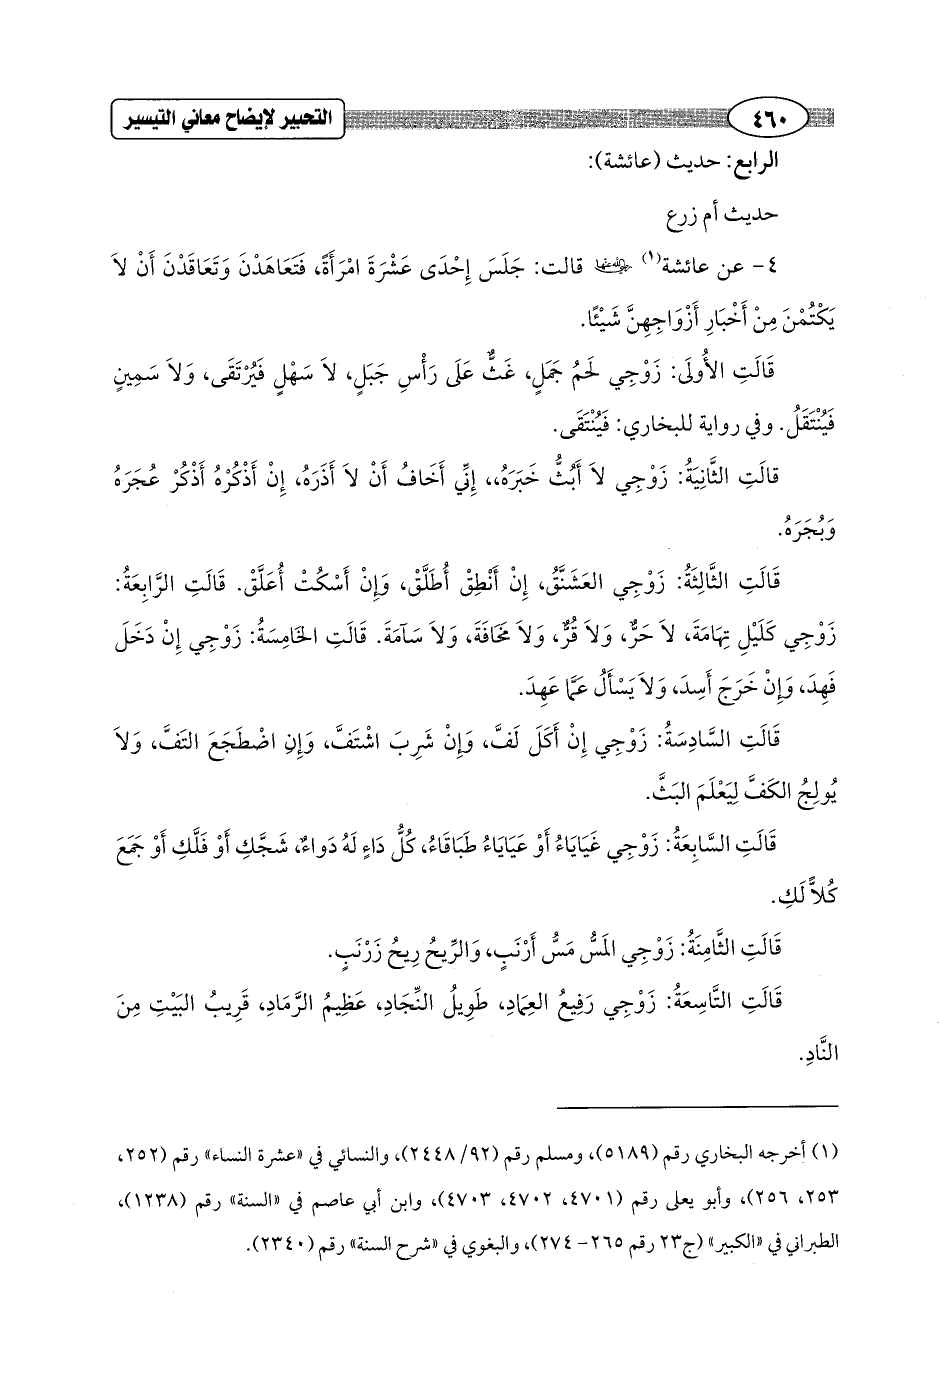 ٤٦٠ التحبير لإيضاح معاني التيسير
الرابع: حديث (عائشة):
حديث أم زرع
٤- عن عائشة(١) رضي الله عنها قالت: جَلَسَ إِحْدَى عَشْرَةَ امْرَأَةً، فَتَعَاهَدْنَ وَتَعَاقَدْنَ أَنْ لاَ
يَكْتُمْنَ مِنْ أَخْبَارِ أَزْوَاجِهِنَّ شَيْئًا.
قَالَتِ الأُولَى: زَوْجِي لَحْمُ جَمَلٍ، غَثٌّ عَلَى رَأْسِ جَبَلٍ، لاَ سَهْلٍ فَيُرْتَقَى، وَلاَ سَمِينٍ
فَيُنْتَقَلُ. وفي رواية للبخاري: فَيُنْتَقَى.
قالَتِ الثَّانِيَةُ: زَوْجِي لاَ أَبُثُّ خَبَرَهُ،، إِنِّي أَخَافُ أَنْ لاَ أَذَرَهُ، إِنْ أَذْكُرْهُ أَذْكُرْ عُجَرَهُ
وَبُجَرَهُ.
قَالَتِ الثَّالِثَةُ: زَوْجِي العَشَنَّقُ، إِنْ أَنْطِقْ أُطَلَّقْ، وَإِنْ أَسْكُتْ أُعَلَّقْ. قَالَتِ الرَّابِعَةُ:
زَوْجِي كَلَيْلِ تِهَامَةَ، لاَ حَرٌّ، وَلاَ قُرٌّ، وَلاَ مَخَافَةَ، وَلاَ سَآمَةَ. قَالَتِ الخَامِسَةُ: زَوْجِي إِنْ دَخَلَ
فَهِدَ، وَإِنْ خَرَجَ أَسِدَ، وَلاَ يَسْأَلُ عَمَّا عَهِدَ.
قَالَتِ السَّادِسَةُ: زَوْجِي إِنْ أَكَلَ لَفَّ، وَإِنْ شَرِبَ اشْتَفَّ، وَإِنِ اضْطَجَعَ التَفَّ، وَلاَ
يُولِجُ الكَفَّ لِيَعْلَمَ البَثَّ.
قَالَتِ السَّابِعَةُ: زَوْجِي غَيَايَاءُ أَوْ عَيَايَاءُ طَبَاقَاءُ، كُلُّ دَاءٍ لَهُ دَواءٌ، شَجَّكِ أَوْ فَلَّكِ أَوْ جَمَعَ
كُلاًّ لَكِ.
قَالَتِ الثَّامِنَةُ: زَوْجِي المَسُّ مَسُّ أَرْنَبٍ، وَالرِّيحُ رِيحُ زَرْنَبٍ.
قَالَتِ التَّاسِعَةُ: زَوْجِي رَفِيعُ العِمادِ، طَوِيلُ النِّجَادِ، عَظِيمُ الرَّمَادِ، قَرِيبُ البَيْتِ مِنَ
النَّادِ.
(١) أخرجه البخاري رقم (٥١٨٩)، ومسلم رقم (٩٢/ ٢٤٤٨)، والنسائي في «عشرة النساء» رقم (٢٥٢،
٢٥٣، ٢٥٦)، وأبو يعلى رقم (٤٧٠١، ٤٧٠٢، ٤٧٠٣)، وابن أبي عاصم في «السنة» رقم (١٢٣٨)،
الطبراني في «الكبير» (ج٢٣ رقم ٢٦٥- ٢٧٤)، والبغوي في «شرح السنة» رقم (٢٣٤٠).